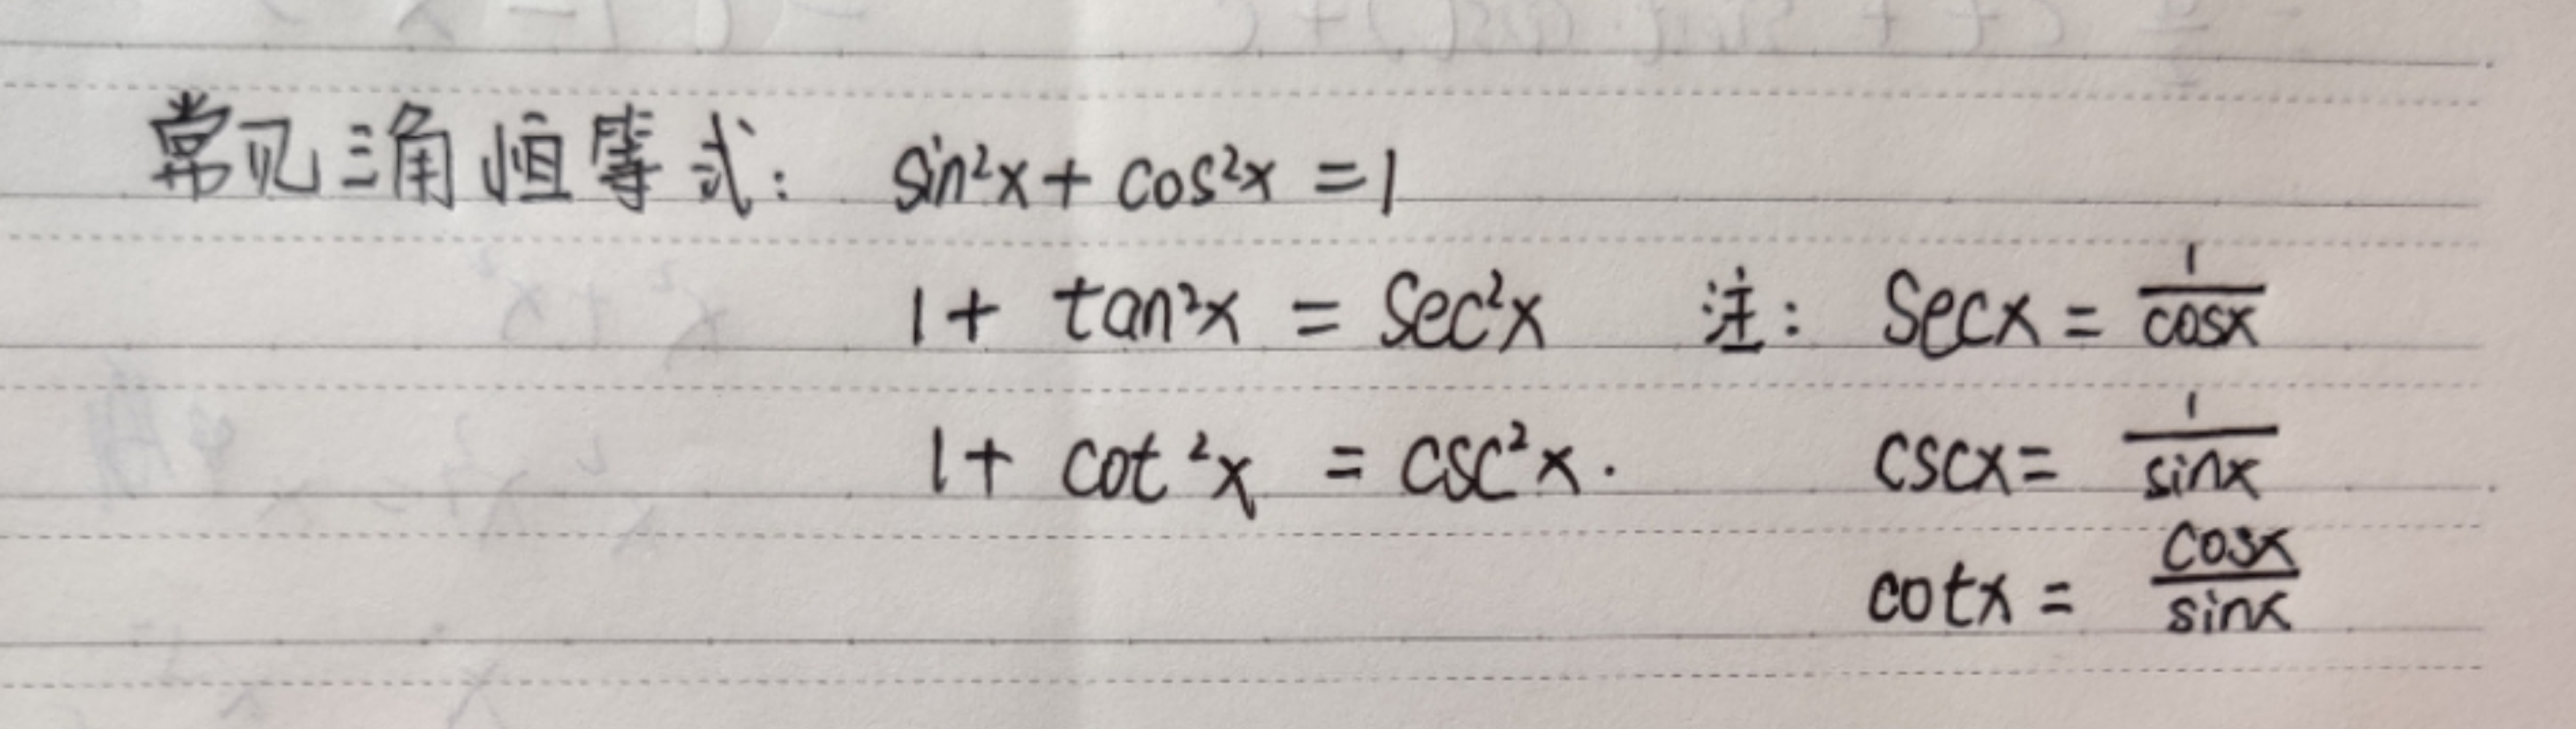 常见三角恒等式: sin²x + cos²x = 1
1 + tan²x = sec²x 注: secx = 1/cosx
1 + cot²x = csc²x. cscx = 1/sinx
cotx = cosx/sinx